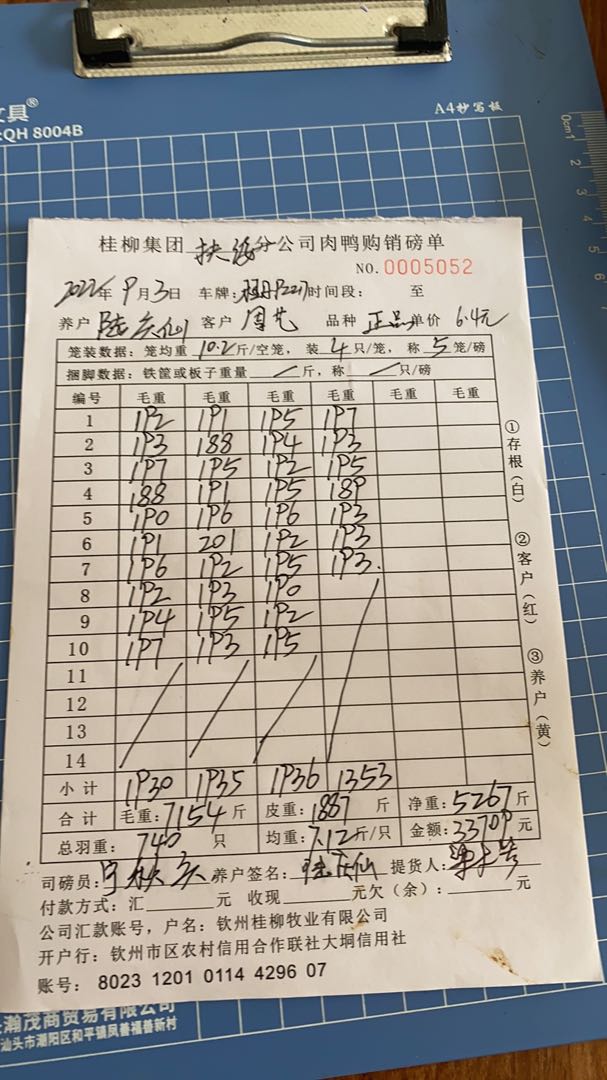 文具®
QH 8004B
A4抄写板
0cm 1 2 3 4 5
桂柳集团 扶绥分公司肉鸭购销磅单
NO. 0005052
2022年 9月3日 车牌: 时间段: 至
养户 陆庆仙 客户 周艺 品种 正品 单价 6.4元
笼装数据: 笼均重 10.2 斤/空笼, 装 4 只/笼, 称 5 笼/磅
捆脚数据: 铁筐或板子重量 / 斤, 称 / 只/磅
编号 毛重 毛重 毛重 毛重 毛重 毛重
1 192 191 195 197
2 193 188 194 193
3 197 195 192 195
4 188 191 195 189
5 190 196 196 193
6 191 201 192 193
7 196 192 195 193
8 192 193 190
9 194 195 192
10 197 193 195
11
12
13
14
小计 1930 1935 1936 1353
合计 毛重: 7154 斤 皮重: 1887 斤 净重: 5267 斤
总羽重: 740 只 均重: 7.12 斤/只 金额: 33709 元
司磅员: 养户签名: 陆庆仙 提货人:
付款方式: 汇______元 收现______元欠(余): ______元
公司汇款账号, 户名: 钦州桂柳牧业有限公司
开户行: 钦州市区农村信用合作联社大垌信用社
账号: 8023 1201 0114 4296 07
①存根(白)
②客户(红)
③养户(黄)
瀚茂商贸易有限公司
汕头市潮阳区和平镇凤善福善新村